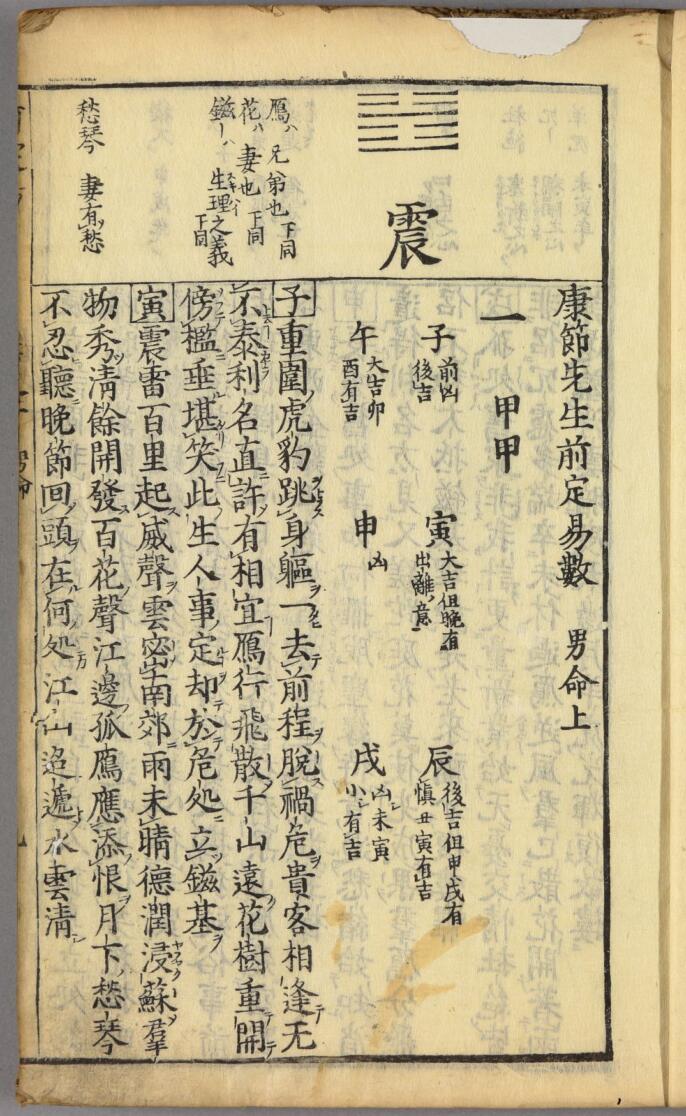 震
鴈ハ兄弟也下同
花ハ妻也下同
鎡ーハ生理之義下同
愁琴 妻有愁
康節先生前定易數 男命上
一 甲甲
子 前凶後吉 寅 大吉但晚有出離ノ意 辰 後吉但申戌有慎丑寅有吉
午 大吉卯酉有吉 申 凶 戌 凶未寅小シ有吉
子重圍虎豹跳身軀一去前程脫禍危貴客相逢无
不泰利名直許有相宜鴈行飛散千山遠花樹重開
傍檻垂堪笑此生人事定却於危処立鎡基
寅震雷百里起威聲雲密南郊雨未晴德潤浸蘇羣
物秀清餘開發百花聲江邊孤鴈應添恨月下愁琴
不忍聽晚節回頭在何処江山迢遞水雲清